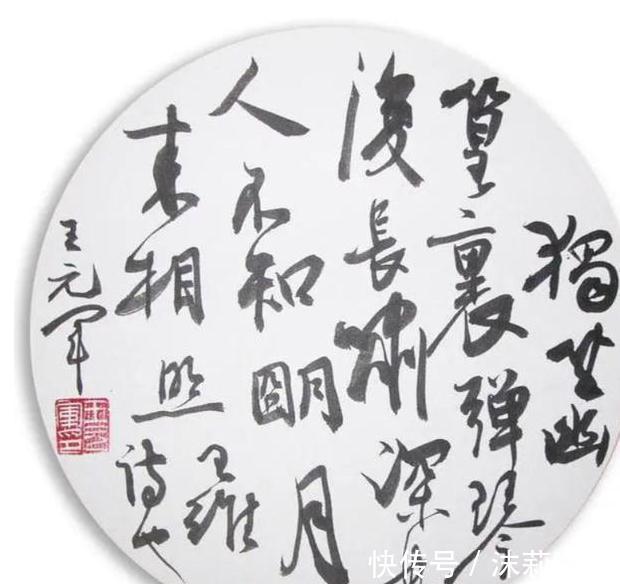 獨坐幽
篁裏弹琴
復長嘯深
人不知朙月
来相照
王維
詩也
王元军
快传号 / 沫莉